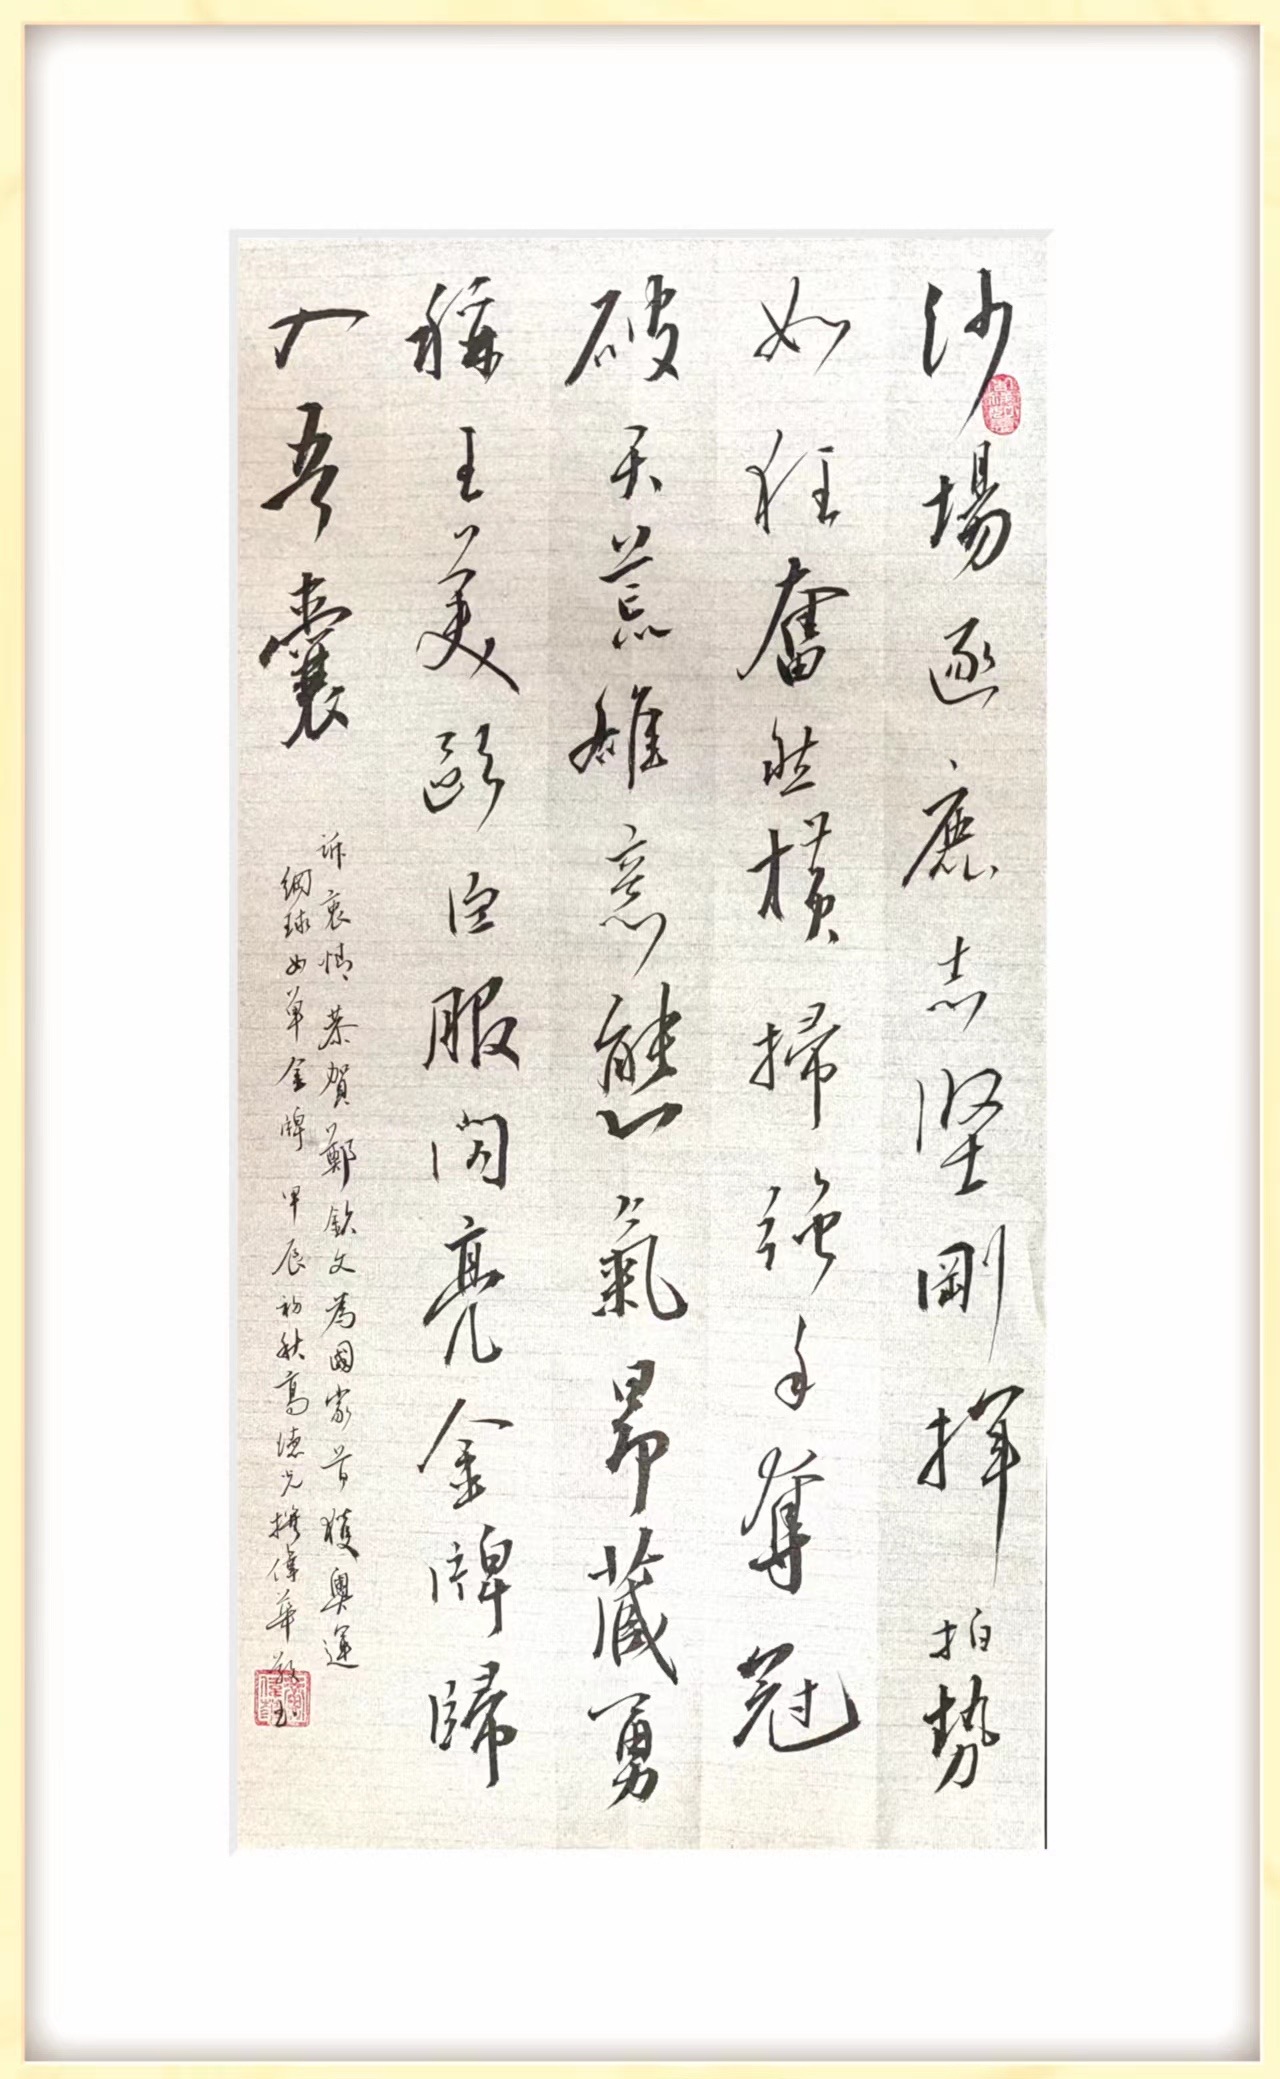 沙場逐鹿志堅剛揮拍勢
如狂奮然橫掃強手奪冠
破天荒雄意態氣昂藏勇
稱王美歐臣服閃亮金牌歸
入吾囊
訴衷情恭賀鄭欽文為國家首獲奧運
網球女單金牌甲辰初秋高德光撰偉華敬書